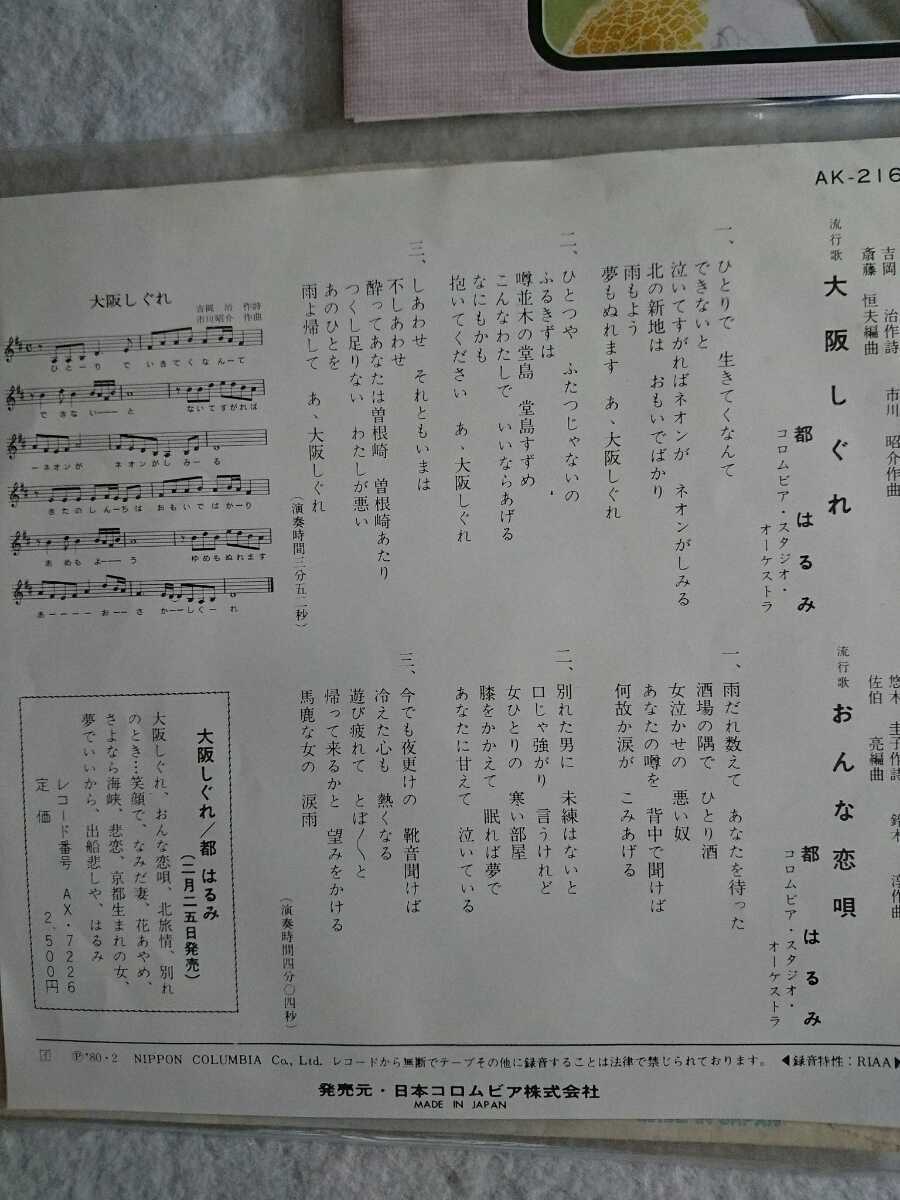 AK-216
流行歌
大阪しぐれ
吉岡 治作詩
市川 昭介作曲
斎藤 恒夫編曲
都 はるみ
コロムビア・スタジオ・
オーケストラ
一、ひとりで 生きてくなんて
できないと
泣いてすがればネオンが ネオンがしみる
北の新地は おもいでばかり
雨もよう
夢もぬれます あゝ大阪しぐれ
二、ひとつや ふたつじゃないの
ふるきずは
噂並木の堂島 堂島すずめ
こんなわたしで いいならあげる
なにもかも
抱いてください あゝ大阪しぐれ
三、しあわせ それともいまは
不しあわせ
酔ってあなたは曽根崎 曽根崎あたり
つくし足りない わたしが悪い
あのひとを
雨よ帰して あゝ大阪しぐれ
(演奏時間三分五二秒)
大阪しぐれ
吉岡 治 作詩
市川昭介 作曲
ひとーり で いきてくなんーて
できない―と ないてすがれば
ーネオンが ネオンがしみーる
きたのしんーちは おもいでばかーり
あめもよーう ゆめもぬれます
あーーーーおーさ かーーしぐーれ
流行歌
おんな恋唄
悠木 圭子作詩
鈴木 淳作曲
佐伯 亮編曲
都 はるみ
コロムビア・スタジオ・
オーケストラ
一、雨だれ数えて あなたを待った
酒場の隅で ひとり酒
女泣かせの 悪い奴
あなたの噂を 背中で聞けば
何故か涙が こみあげる
二、別れた男に 未練はないと
口じゃ強がり 言うけれど
女ひとりの 寒い部屋
膝をかかえて 眠れば夢で
あなたに甘えて 泣いている
三、今でも夜更けの 靴音聞けば
冷えた心も 熱くなる
遊び疲れて とぼ〱と
帰って来るかと 望みをかける
馬鹿な女の 涙雨
(演奏時間四分〇四秒)
大阪しぐれ/都 はるみ
(二月二五日発売)
大阪しぐれ、おんな恋唄、北旅情、別れ
のとき…笑顔で、なみだ妻、花あやめ、
さよなら海峡、悲恋、京都生まれの女、
夢でいいから、出船悲しや、はるみ
レコード番号 AX・7226
定価 2,500円
Ⓟ'80・2 NIPPON COLUMBIA Co., Ltd. レコードから無断でテープその他に録音することは法律で禁じられております。 ◀録音特性:RIAA▶
発売元・日本コロムビア株式会社
MADE IN JAPAN